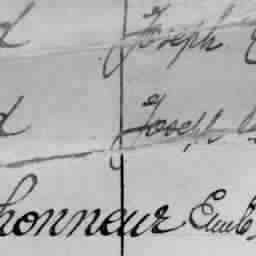 d Joseph
d Joseph
honneur Emile